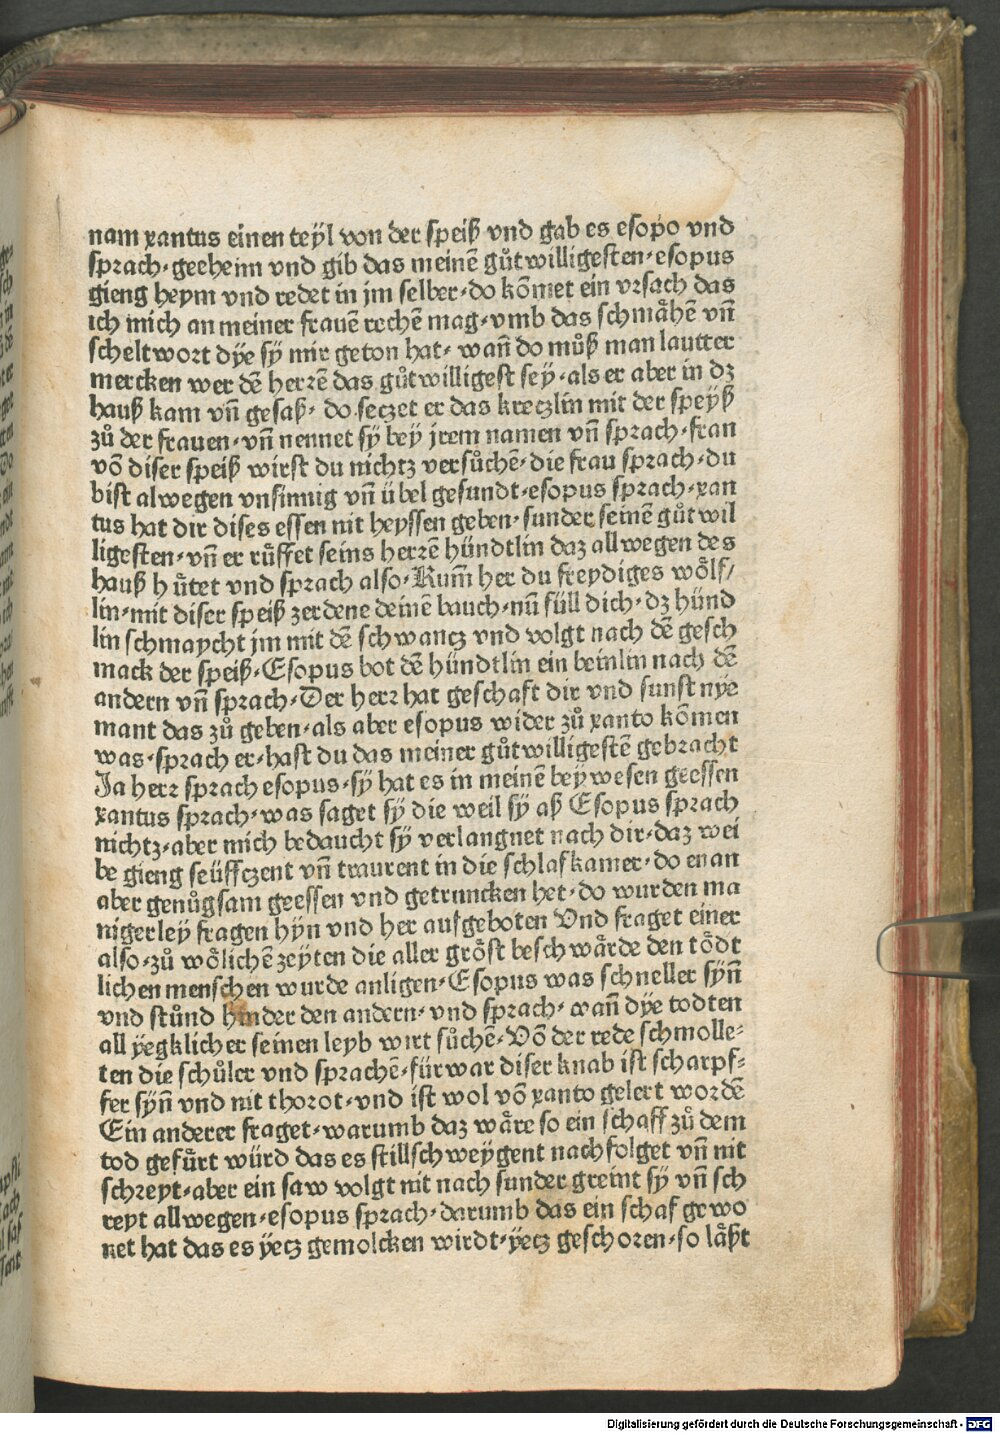 nam xantus einen teÿl von der speiß vnd gab es esopo vnd
sprach·gee heim vnd gib das meinē gůtwilligesten·esopus
gieng heym vnd redet in jm selber·do kōmet ein vrsach das
ich mich an meiner frauē rechē mag·vmb das schmåhē vn̄
scheltwort dÿe sÿ mir geton hat·wan̄ do můß man lautter
mercken wer dē herzē das gůtwilligest seÿ·als er aber in dz
hauß kam vn̄ gesaß·do seczet er das kreczlin mit der speÿß
zů der frauen·vn̄ nennet sÿ bey jrem namen vn̄ sprach·frau
vō diser speiß wirst du nichtz versůchē·die frau sprach·du
bist alwegen vnsinnig vn̄ übel gesundt·esopus sprach·xan
tus hat dir dises essen nit heyssen geben·sunder seinē gůtwil
ligesten·vn̄ er růffet seins herzē hündtlin daz allwegen des
hauß hůtet vnd sprach also·Kum̄ her du freydiges wölf/
lin·mit diser speiß zerdene deinē bauch·nū füll dich·dz hünd
lin schmaycht jm mit dē schwancz vnd volgt nach dē gesch
mack der speiß·Esopus bot dē hündtlin ein beinlin nach dē
andern vn̄ sprach·Der herz hat geschaft dir vnd sunst nÿe
mant das zů geben·als aber esopus wider zů xanto kōmen
was·sprach er·hast du das meiner gůtwilligestē gebracht
Ja herz sprach esopus·sÿ hat es in meinē beywesen geessen
xantus sprach·was saget sÿ die weil sÿ aß Esopus sprach
nichtz·aber mich bedaucht sÿ verlangnet nach dir·daz wei
be gieng seüffczent vn̄ traurent in die schlafkamer·do man
aber genůgsam geessen vnd getruncken het·do wurden ma
nigerleÿ fragen hÿn vnd her aufgeboten Vnd fraget einer
also·zů wölichē zeÿten die aller gröst beschwårde den tödt
lichen menschen wurde anligen·Esopus was schneller sÿn̄
vnd stůnd hinder den andern·vnd sprach·wan̄ dÿe todten
all ÿegklicher seinen leyb wirt sůchē·Vō der rede schmolle⸗
ten die schůler vnd sprachē·fürwar diser knab ist scharpf⸗
fer sÿn̄ vnd nit thorot·vnd ist wol vō xanto gelert wordē
Ein anderer fraget·warumb daz wåre so ein schaff zů dem
tod gefůrt würd das es stillschweÿgent nachfolget vn̄ nit
schreyt·aber ein saw volgt nit nach sunder greint sÿ vn̄ sch
reyt allwegen·esopus sprach·darumb das ein schaf gewo
net hat das es ÿecz gemolcken wirdt·ÿecz geschoren·so låßt
Digitalisierung gefördert durch die Deutsche Forschungsgemeinschaft - DFG